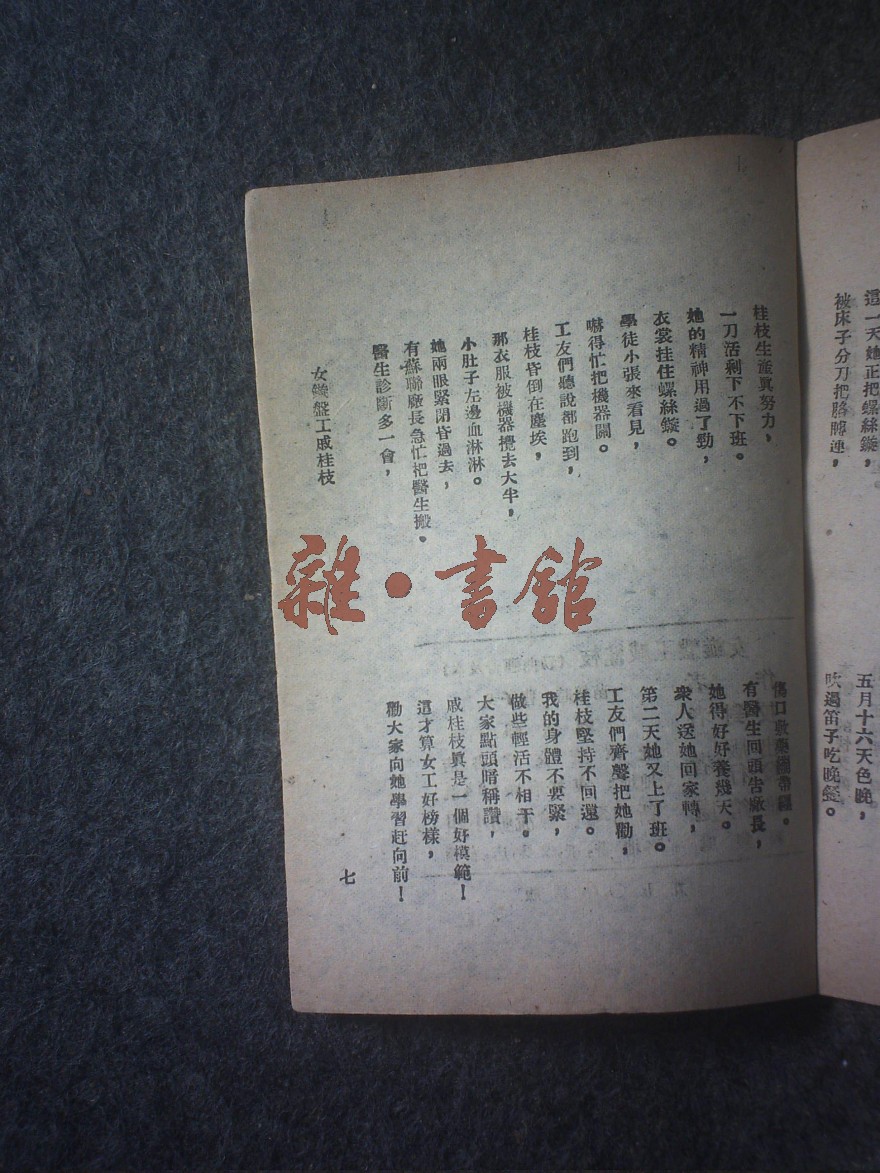 這一天她正把螺絲鏇，
被床子分刀把胳膊連，
五月十六天色晚，
吹過笛子吃晚餐。
桂枝生產眞努力，
一刀活剩下不下班。
她的精神用過了勁，
衣裳挂住螺絲鏇。
學徒小張來看見，
嚇得忙把機器關。
工友們聽說都跑到，
桂枝昏倒在塵埃，
那衣服被機器攪去大半，
小肚子左邊血淋淋。
她兩眼緊閉昏過去，
有蘇聯廠長急忙把醫生搬。
醫生診斷多一會，
傷口敷藥綳帶纏。
有醫生回頭告廠長，
她得好好養幾天。
衆人送她回家轉，
第二天她又上了班。
工友們齊聲把她勸，
桂枝堅持不回還。
我的身體不要緊，
做些輕活不相干。
大家點頭暗稱讚，
戚桂枝眞是一個好模範！
這才算女工好榜樣，
勸大家向她學習赶向前！
女鏇盤工戚桂枝
七
雜·書館